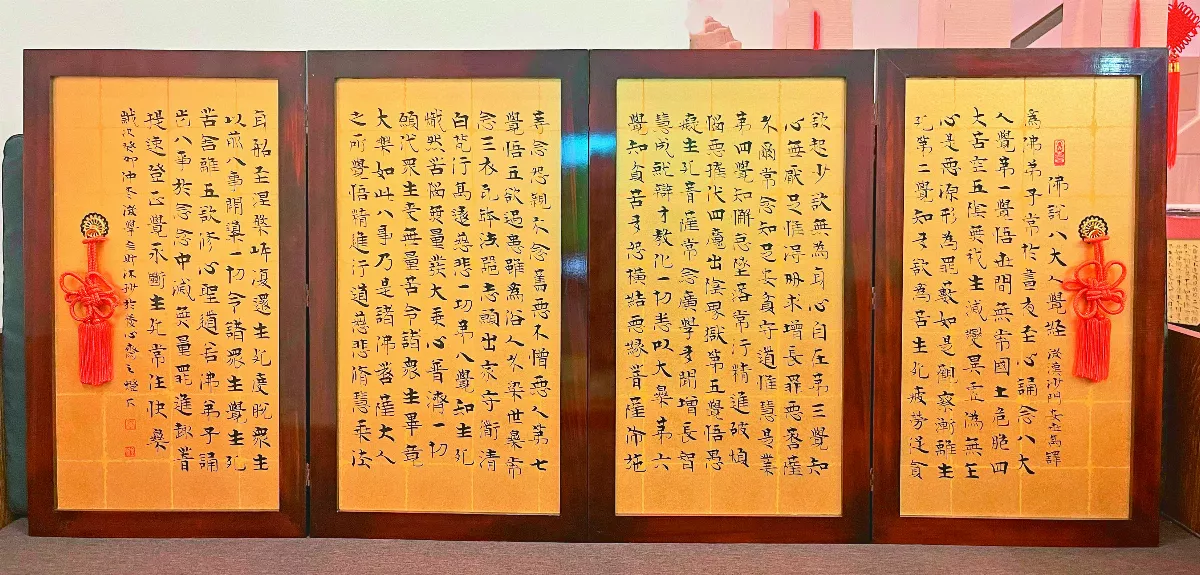 佛說八大人覺經 後漢沙門安世高譯
為佛弟子常於晝夜至心誦念八大
人覺第一覺悟世間無常國土危脆四
大苦空五陰無我生滅變異虛偽無主
心是惡源形為罪藪如是觀察漸離生
死第二覺知多欲為苦生死疲勞從貪
欲起少欲無為身心自在第三覺知
心無厭足惟得多求增長罪惡菩薩
不爾常念知足安貧守道惟慧是業
第四覺知懈怠墜落常行精進破煩
惱惡摧伏四魔出陰界獄第五覺悟愚
癡生死菩薩常念廣學多聞增長智
慧成就辯才教化一切悉以大樂第六
覺知貧苦多怨橫結惡緣菩薩布施
等念怨親不念舊惡不憎惡人第七
覺悟五欲過患雖為俗人不染世樂常
念三衣瓦缽法器志願出家守道清
白梵行高遠慈悲一切第八覺知生死
熾然苦惱無量發大乘心普濟一切
願代眾生受無量苦令諸眾生畢竟
大樂如此八事乃是諸佛菩薩大人
之所覺悟精進行道慈悲修慧乘法
身船至涅槃岸復還生死度脫眾生
以前八事開導一切令諸眾生覺生死
苦舍離五欲修心聖道若佛弟子誦
此八事於念念中滅無量罪進趣菩
提速登正覺永斷生死常住快樂
歲次癸卯仲冬後學沐抄於養心齋之燈下